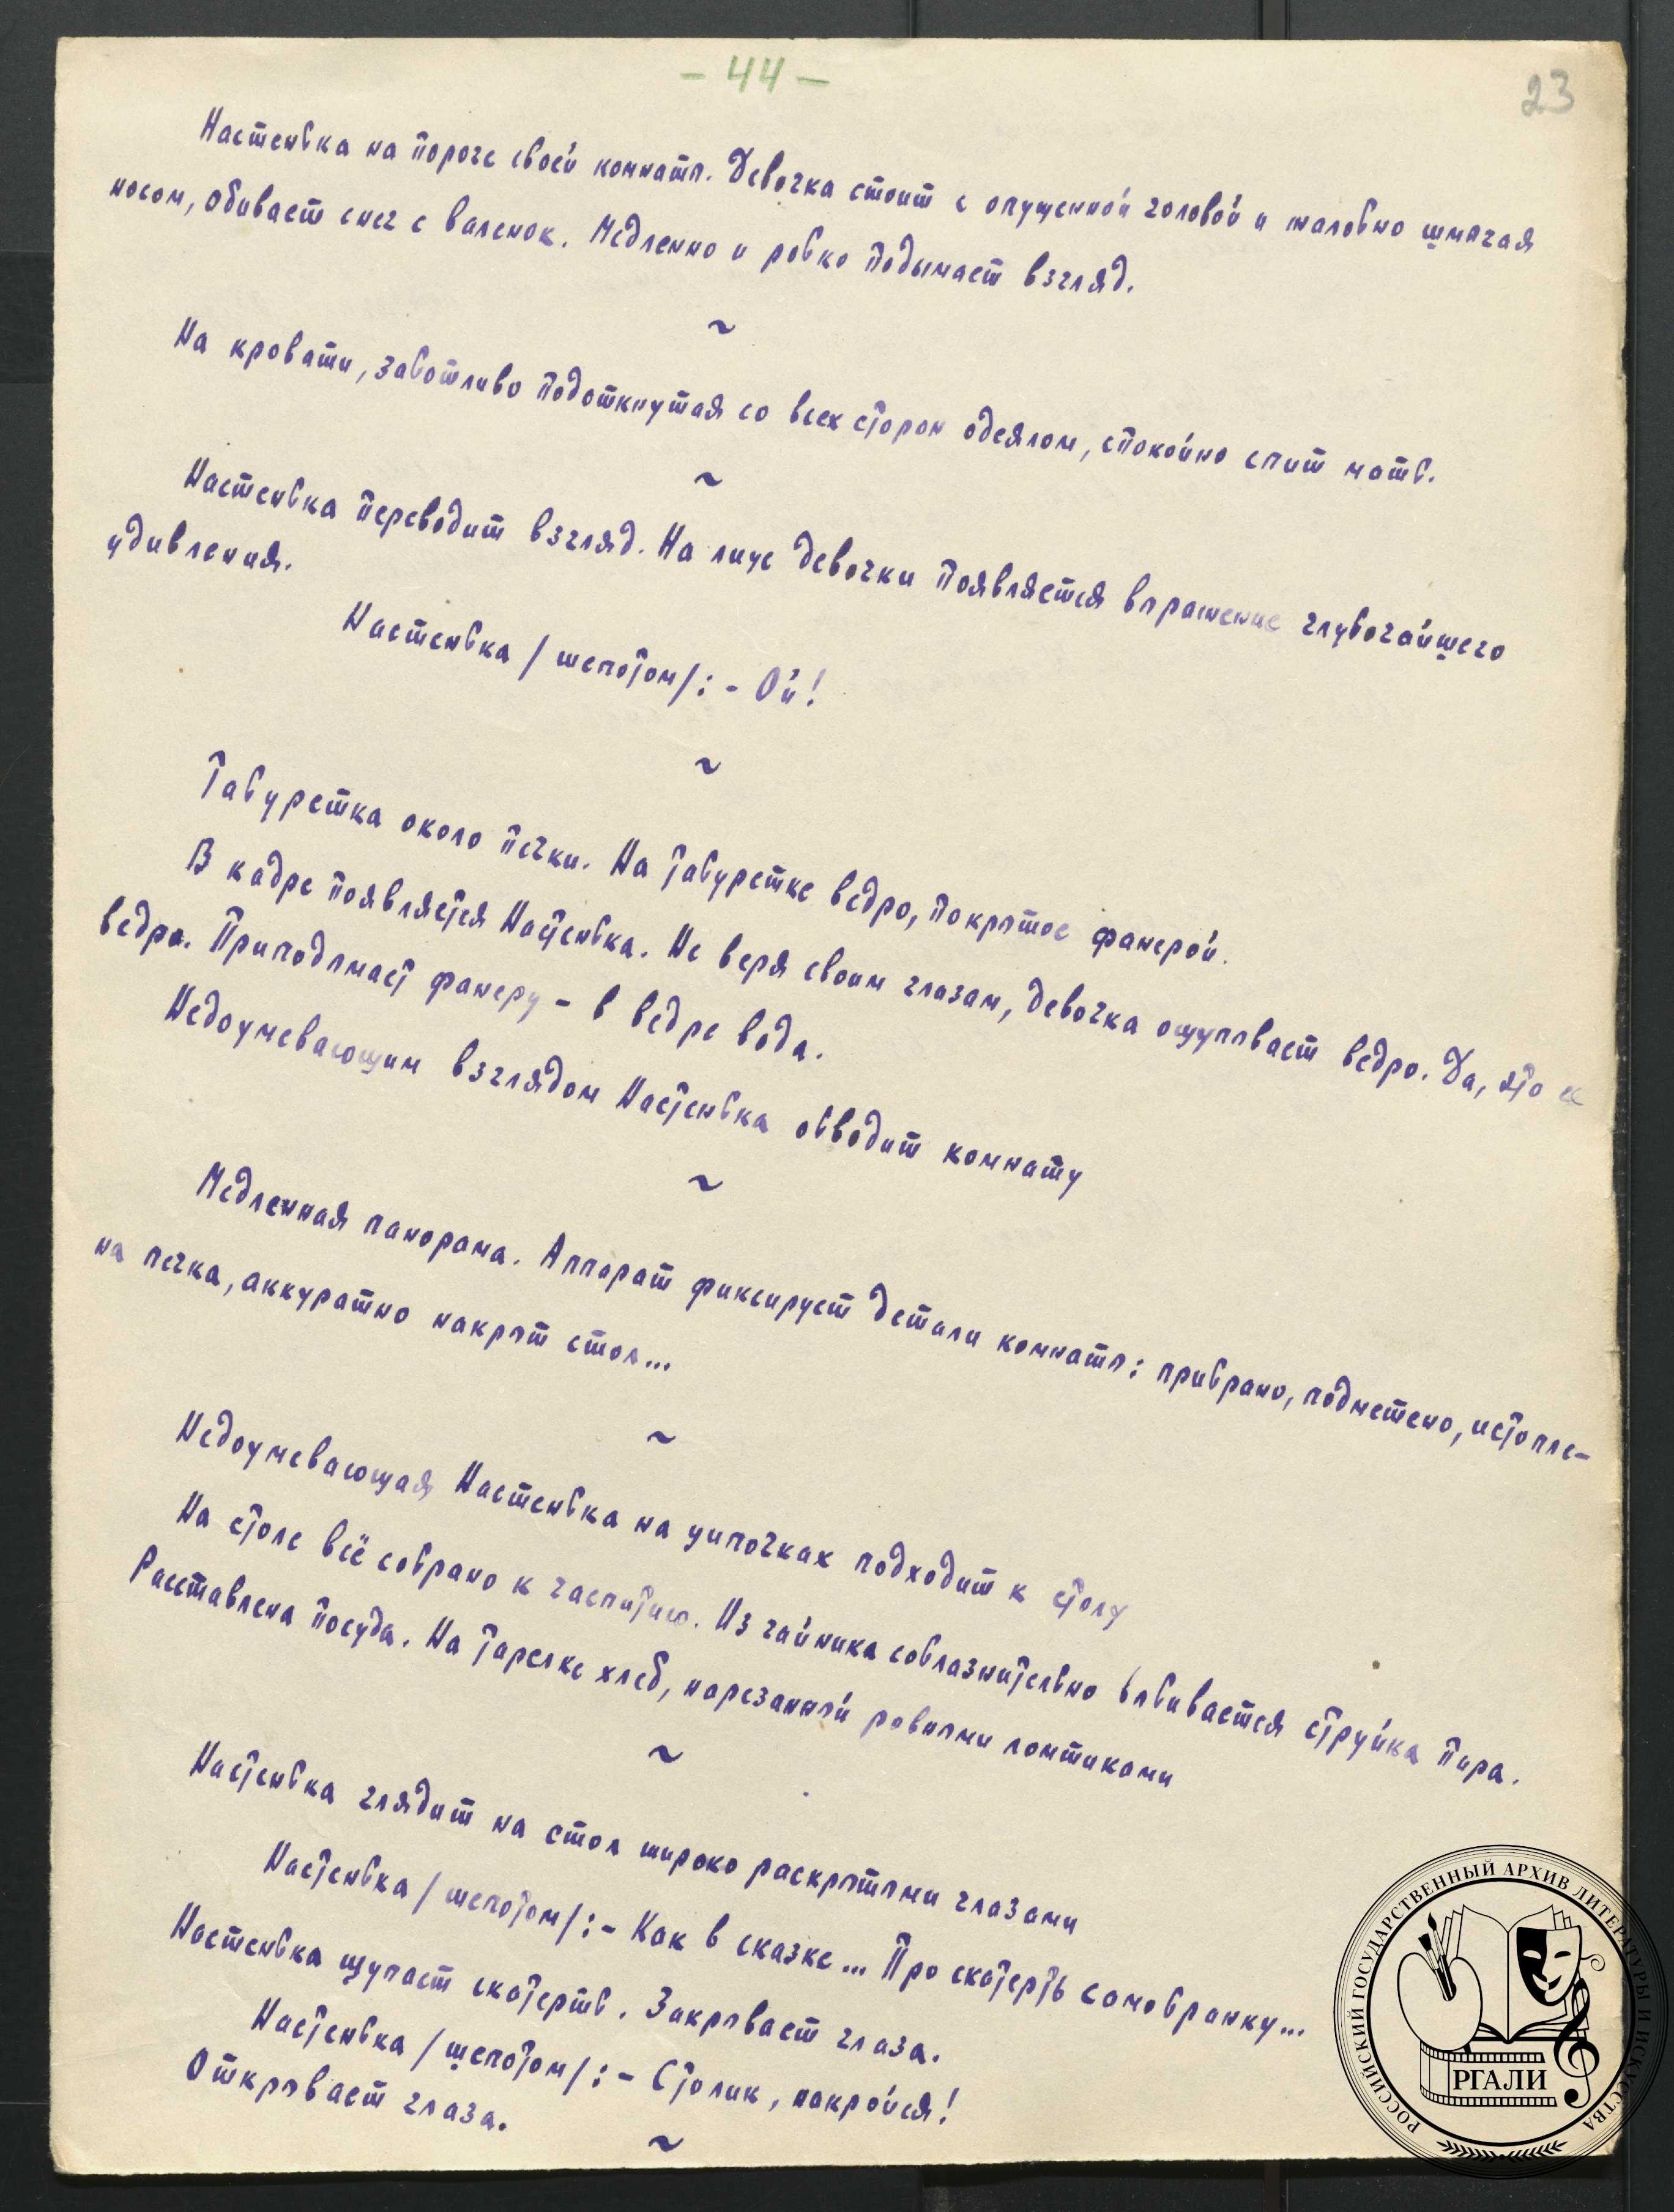 - 44 -
23
Настенька на пороге своей комнаты. Девочка стоит с опущенной головой и жалобно шмыгая
носом, обивает снег с валенок. Медленно и робко подымает взгляд.
~
На кровати, заботливо подоткнутая со всех сторон одеялом, спокойно спит мать.
~
Настенька переводит взгляд. На лице девочки появляется выражение глубочайшего
удивления.
Настенька /шепотом/: - Ой!
~
Табуретка около печки. На табуретке ведро, покрытое фанерой.
В кадре появляется Настенька. Не веря своим глазам, девочка ощупывает ведро. Да, это их
ведро. Приподымает фанеру - в ведре вода.
Недоумевающим взглядом Настенька обводит комнату
~
Медленная панорама. Аппарат фиксирует детали комнаты: прибрано, подметено, истопле-
на печка, аккуратно накрыт стол...
~
Недоумевающая Настенька на цыпочках подходит к столу
На столе всё собрано к чаепитию. Из чайника соблазнительно взвивается струйка пара.
Расставлена посуда. На тарелке хлеб, нарезанный ровными ломтиками
~
Настенька глядит на стол широко раскрытыми глазами
Настенька /шепотом/: - Как в сказке... Про скатерть самобранку...
Настенька щупает скатерть. Закрывает глаза.
Настенька /шепотом/: - Столик, накройся!
Открывает глаза.
~
РОССИЙСКИЙ ГОСУДАРСТВЕННЫЙ АРХИВ ЛИТЕРАТУРЫ И ИСКУССТВА
РГАЛИ